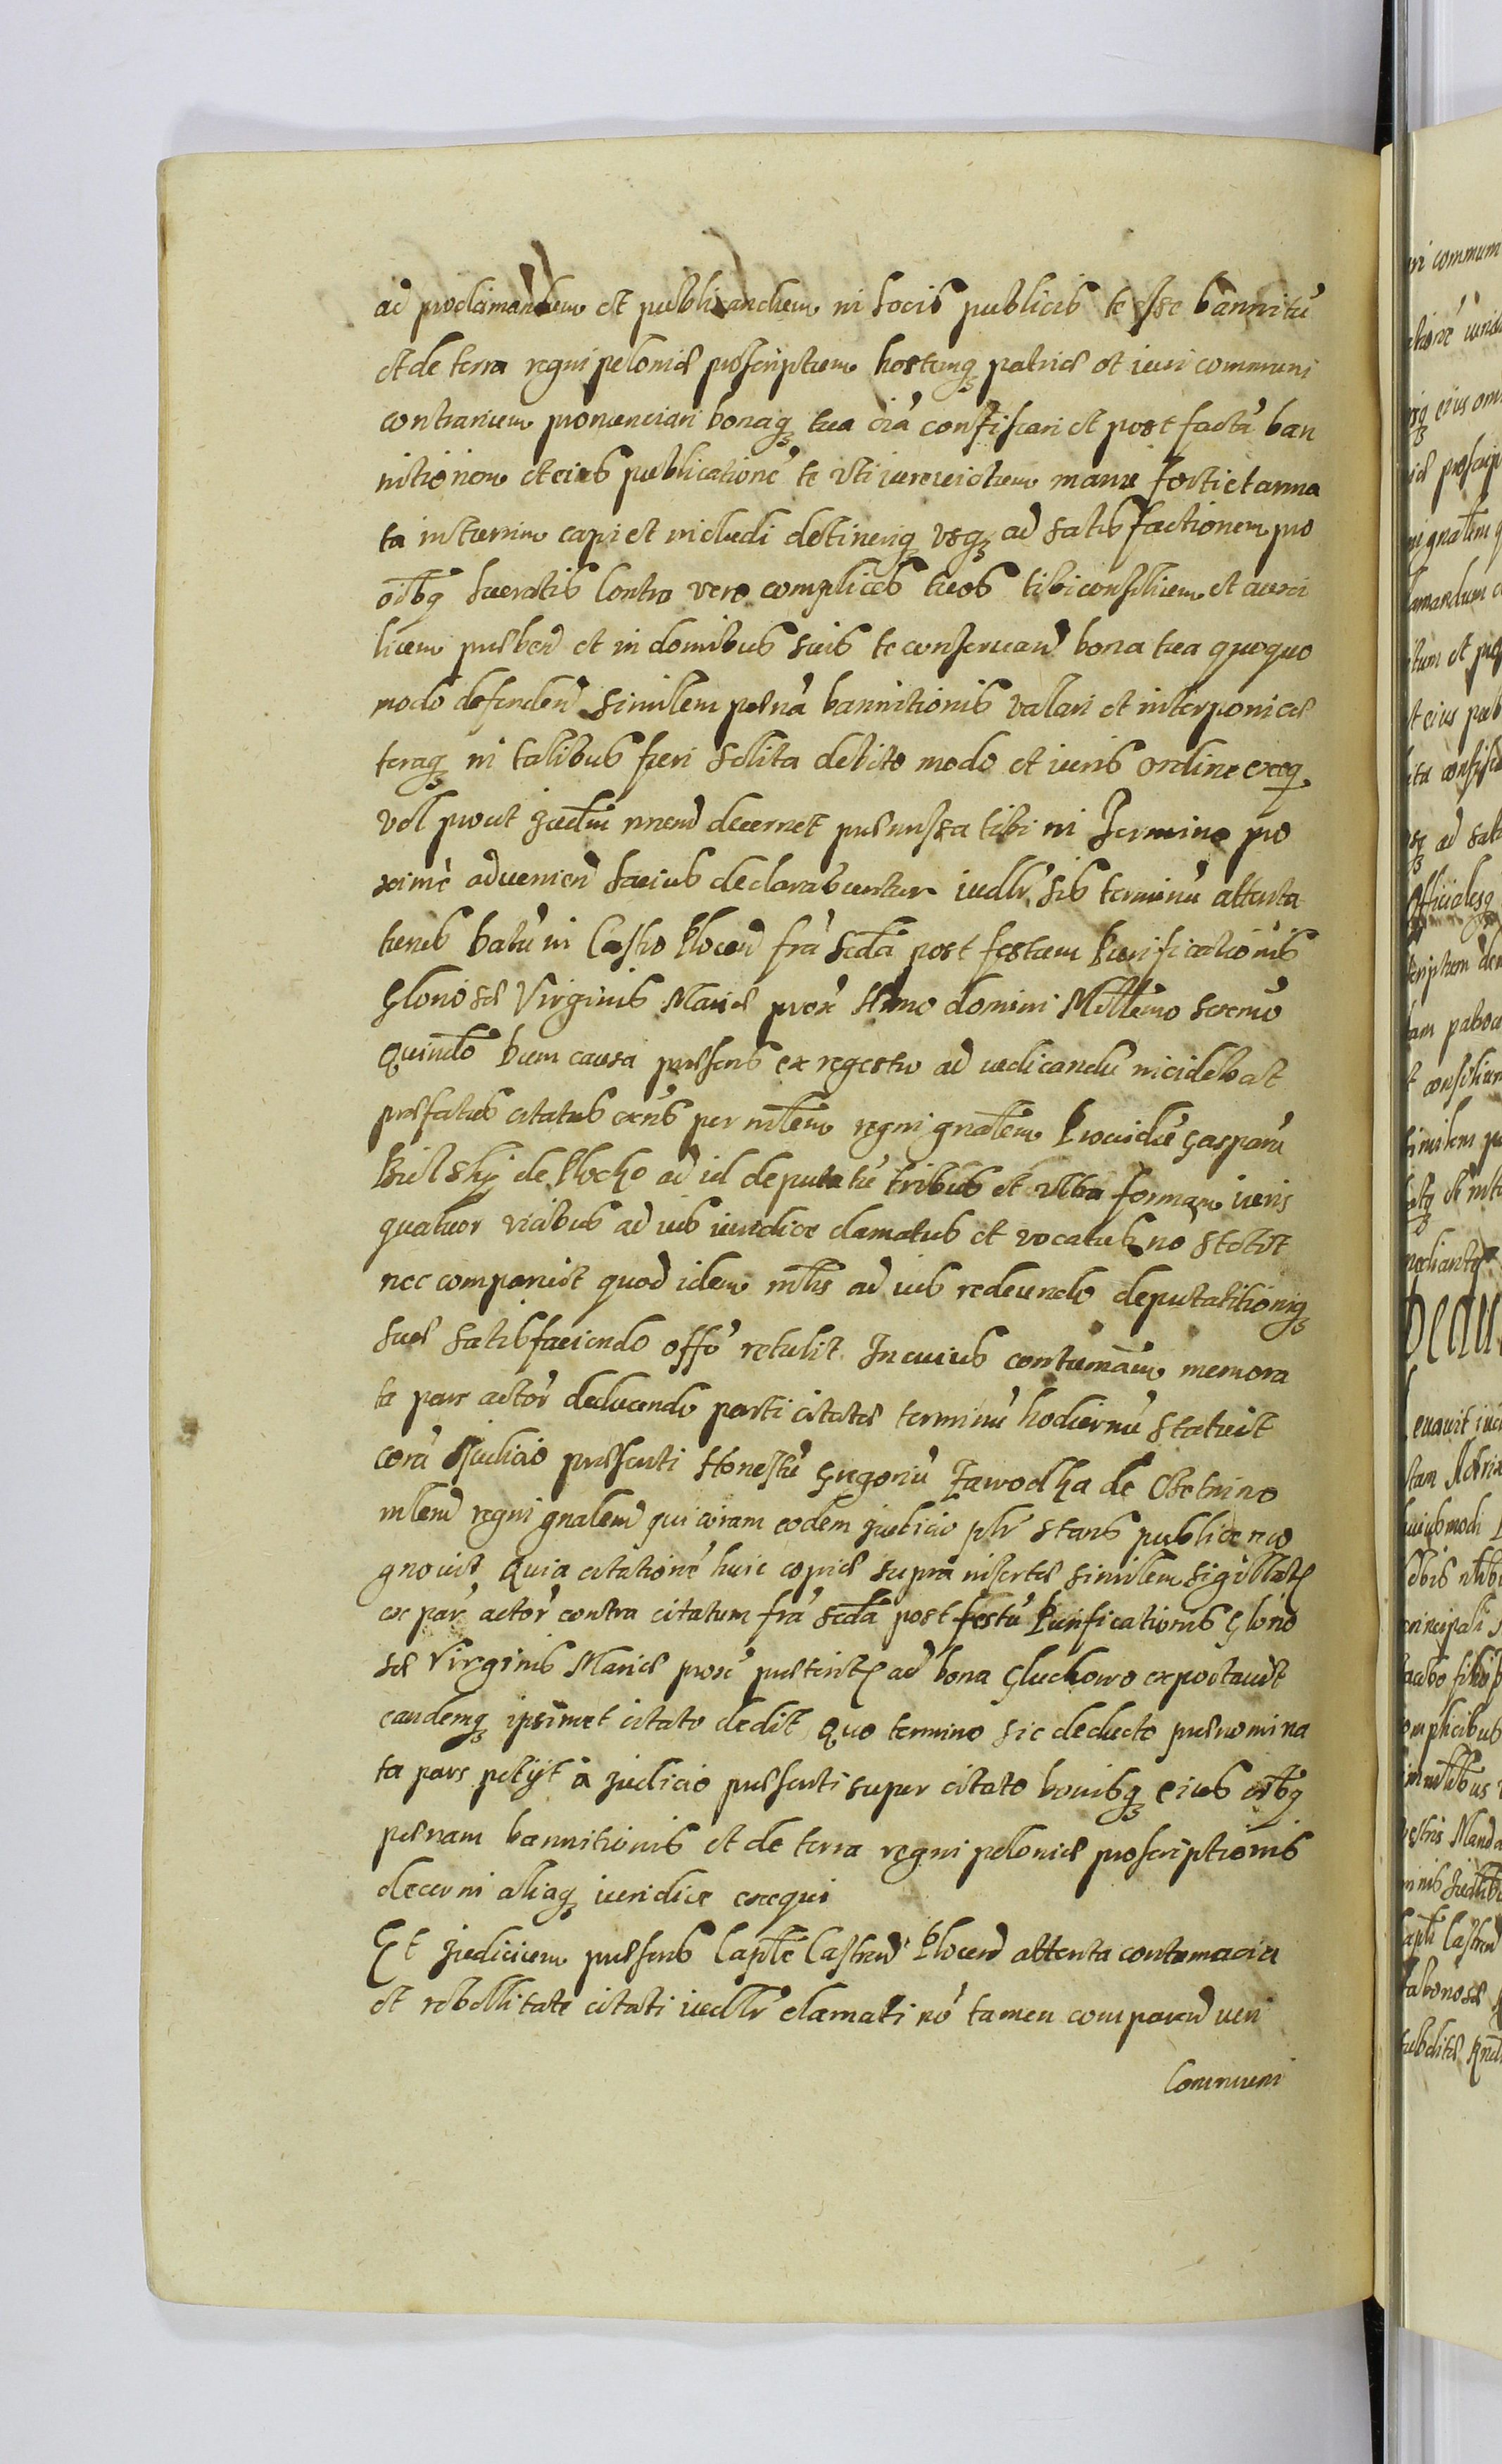 ad proclamandum et publicandum in locis publicis te esse bannitũ
et de terra regni poloniæ proscriptum hostemq patriæ et iuri communi
contrarium pronunciari bonaq tua oĩa confiscari et post factã ban
nitionem et eius publicationẽ te vti iure victum manu forti et arma
ta in turrim capi et includi detineriq vsq ad satisfactionem pro
oĩbq lucratis Contra vero complices tuos tibi consilium et auxi
lium præben et in domibus suis te conseruan bona tua quoquo
modo defenden similem pœnã bannitionis vallari et interponi cæ
teraq in talibus fieri solita debito modo et iuris ordine exeq
vel prout Judm inven decernet præmissa tibi in Termino pro
ximè advenien latius declarabuntur iudlr sis terminũ attenta
turus Datũ in Castro Plocen frã scda post festum Purificationis
Gloriosæ Virginis Mariæ prox Anno domini Millmo sexcmo
Quindo Dum causa præsens ex regestro ad iudicandũ incidebat
præfatus citatus exns per mlem regni gnalem Prouidũ Gasparũ
Bielsky de Plocko ad id deputatũ tribus et vltra formam iuris
quatuor vicibus ad ius iuridice clamatus et vocatus nõ stetit
nec comparuit quod idem mlis ad ius redeundo deputatitioniq
suæ satisfaciendo offõ retulit In cuius contumãm memora
ta pars actor deducendo parti citatæ terminũ hodiernũ statuit
corã Judicio præsenti Honestũ Gregoriũ Zawodka de
mlem regni gnalem qui coram eodem Judicio plr stans publice reco
gnouit Quia citationẽ huic copiæ supra insertæ similem sigillat
ex par actor contra citatum frã scda post festũ Purificationis Glorio
sæ Virginis Mariæ prox præterit ad bona Gluchowo exportauit
eandemq ipsimet citato dedit Quo termino sic deducto prænomina
ta pars petijt à Judicio præsenti super citato bonisq eius oĩbq
pœnam bannitionis et de terra regni poloniæ proscriptionis
decerni aliaq iuridice exequi
Et Judicium præsens Captle Castren Plocen attenta contumacia
et rebellitate citati iudlr clamati nõ tamen comparen iuri
Communi